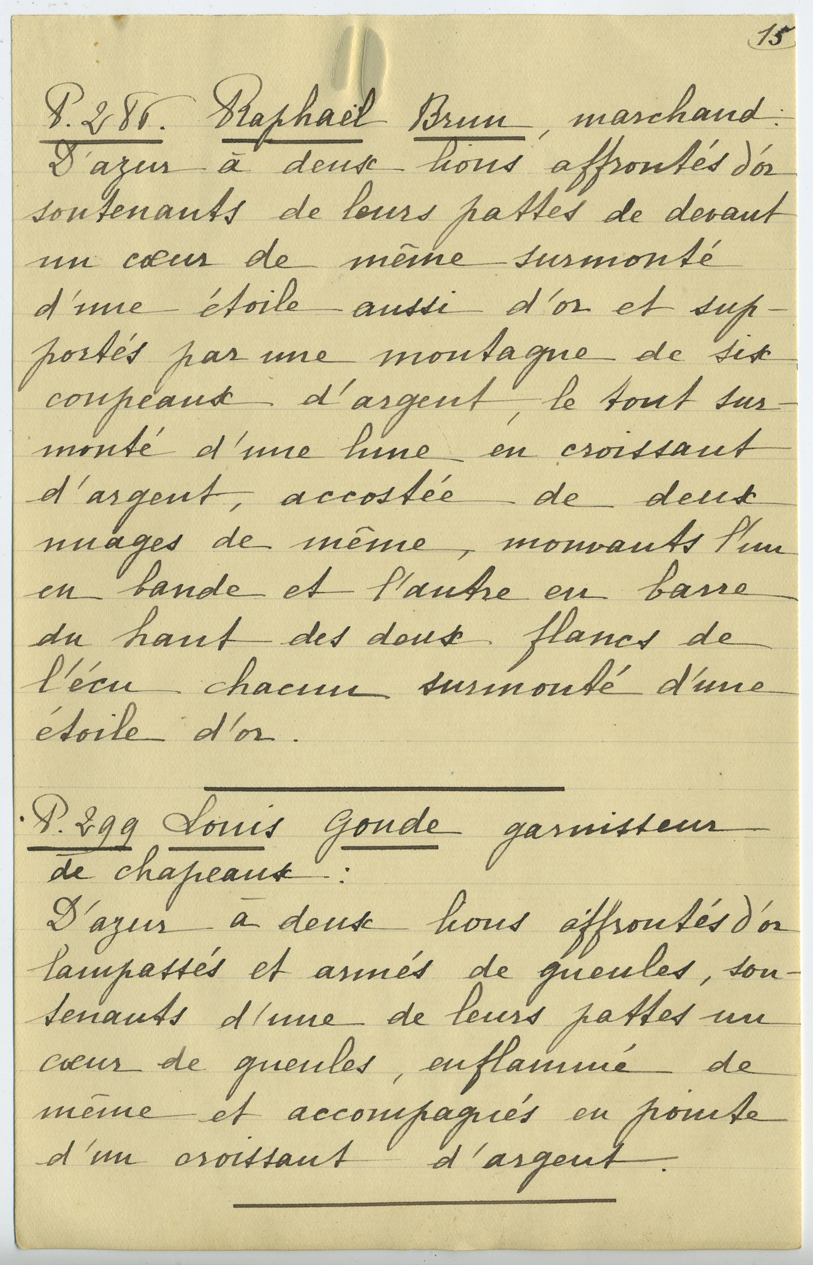 15
P. 286. Raphaël Brun, marchand :
D'azur à deux lions affrontés d'or
soutenants de leurs pattes de devant
un cœur de même surmonté
d'une étoile aussi d'or et sup-
portés par une montagne de six
coupeaux d'argent, le tout sur-
monté d'une lune en croissant
d'argent, accostée de deux
nuages de même, mouvants l'un
en bande et l'autre en barre
du haut des deux flancs de
l'écu chacun surmonté d'une
étoile d'or.
P. 299 Louis Gonde garnisseur
de chapeaux :
D'azur à deux lions affrontés d'or
lampassés et armés de gueules, sou-
tenants d'une de leurs pattes un
cœur de gueules, enflammé de
même et accompagnés en pointe
d'un croissant d'argent.